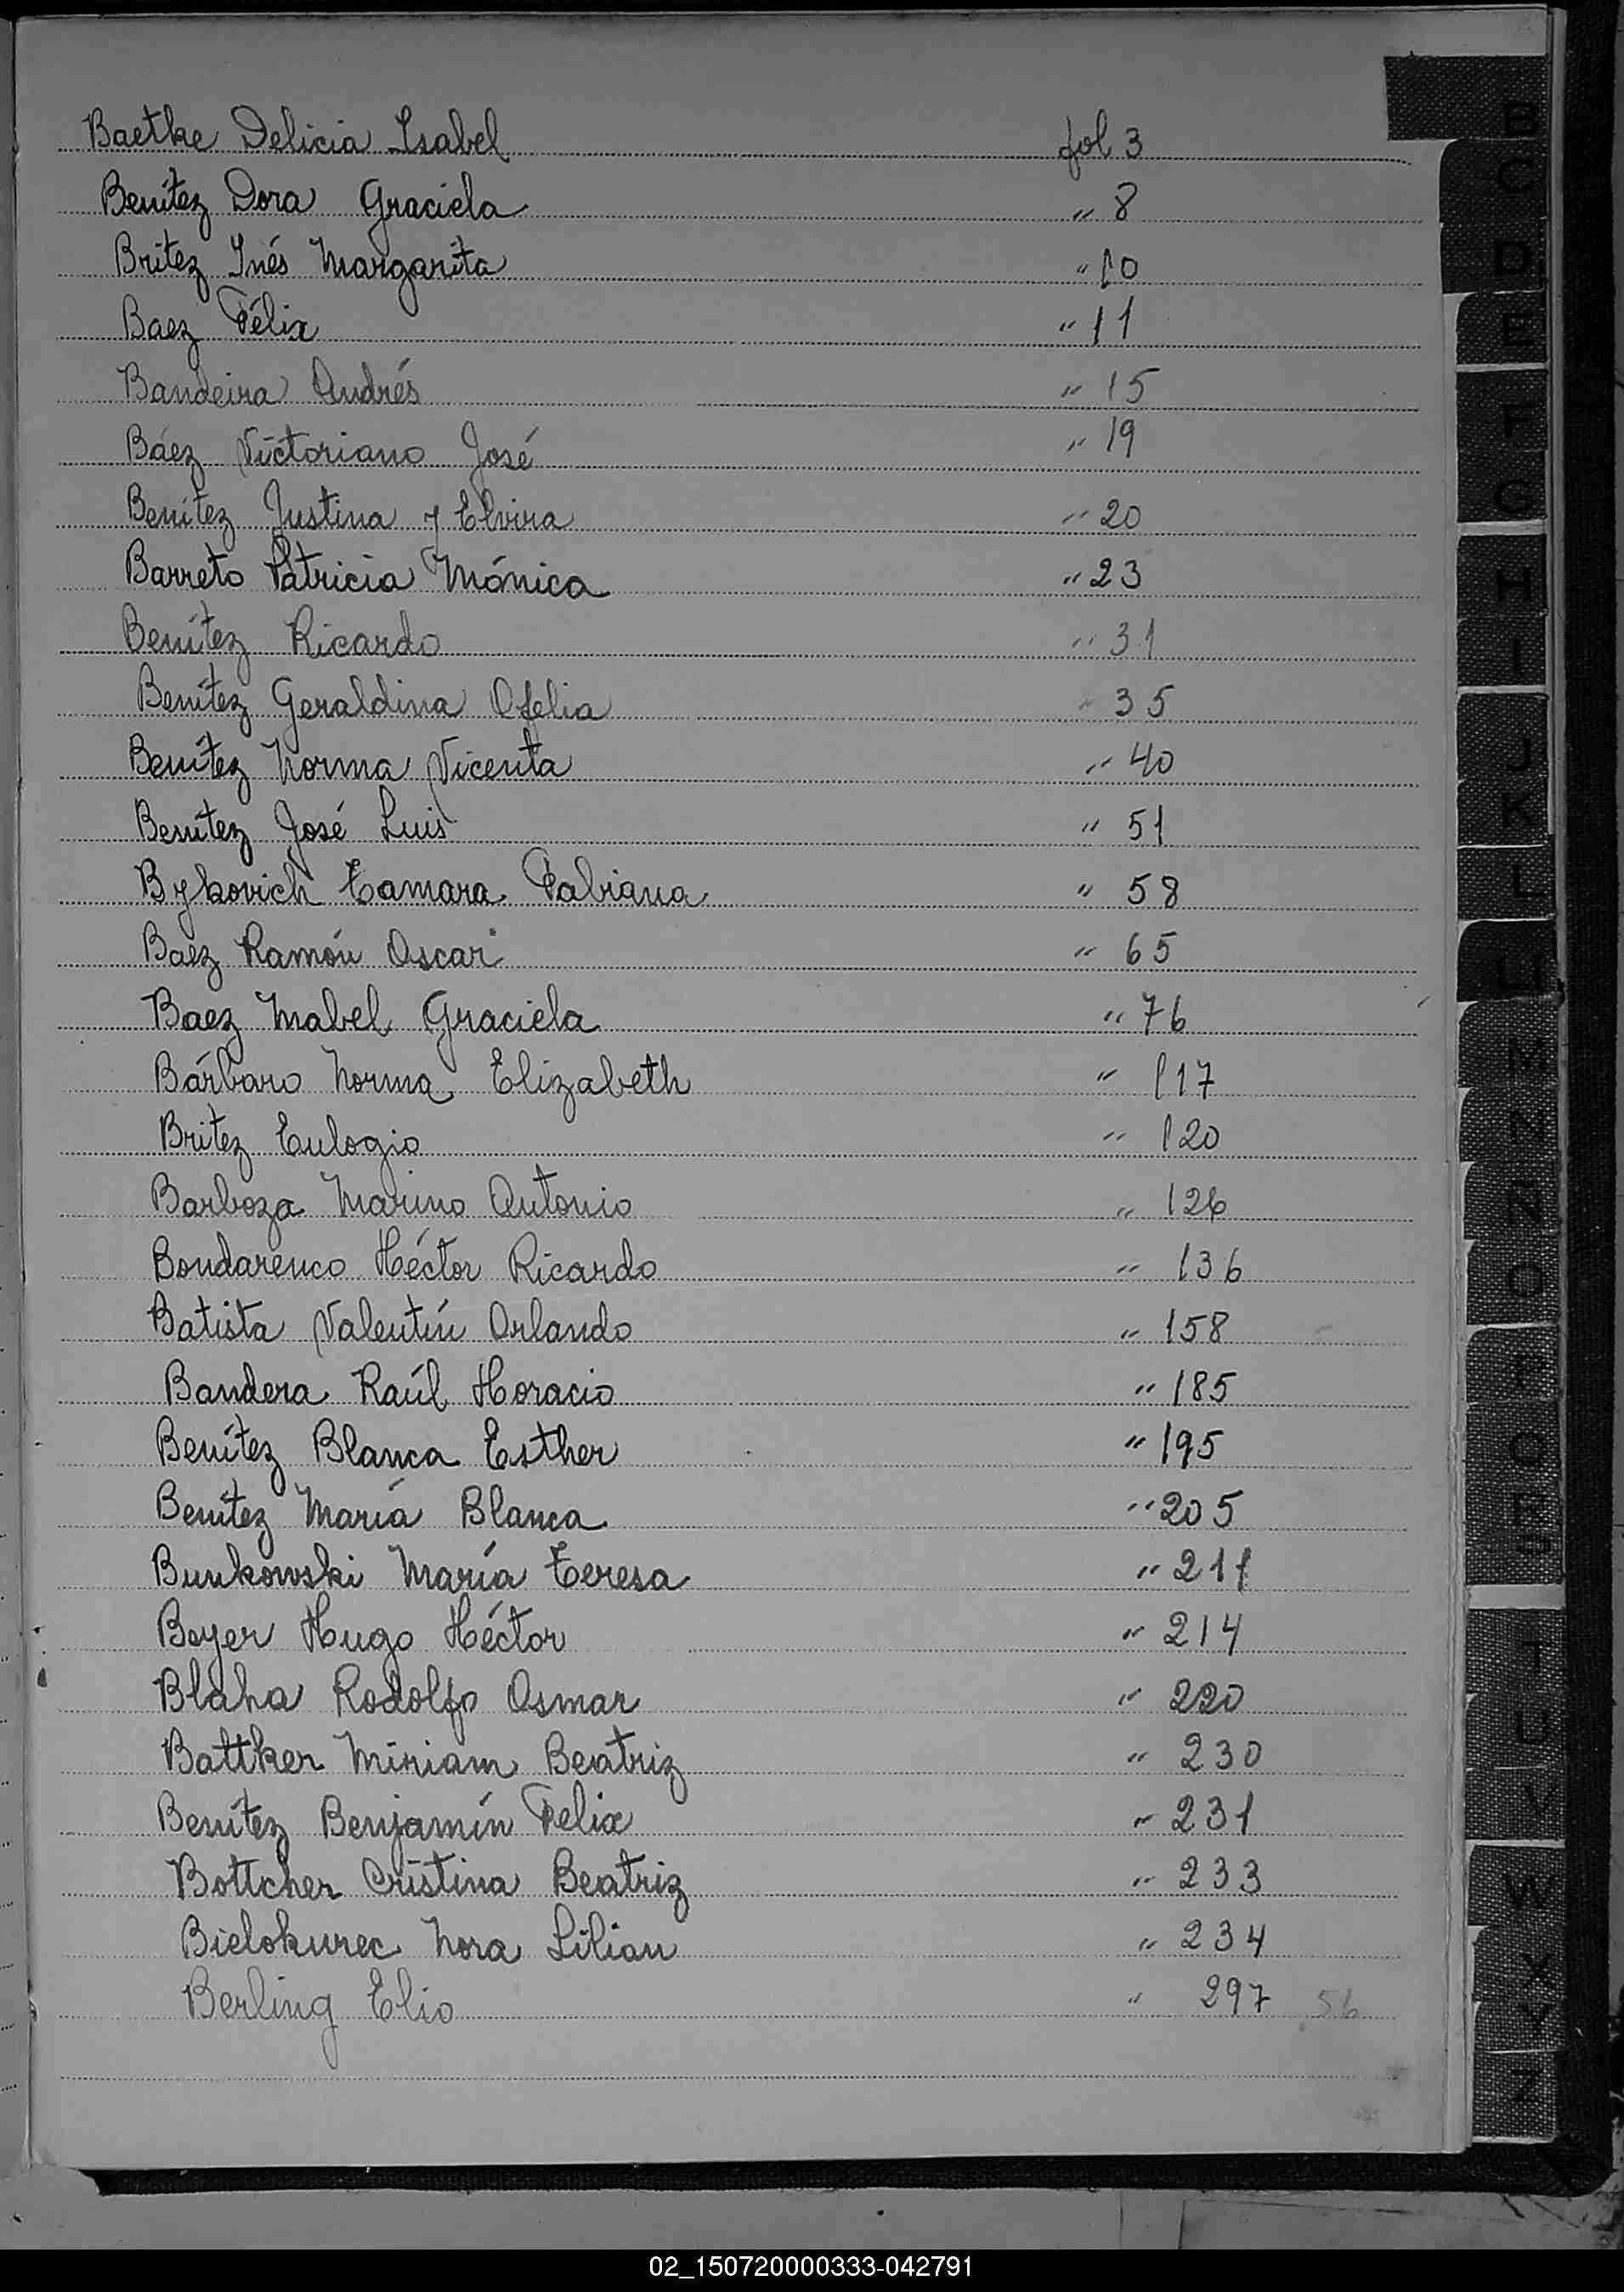 Baetke Delicia Isabel fol 3
Benítez Dora Graciela " 8
Britez Inés Margarita " 10
Baez Félix " 11
Bandeira Andrés " 15
Báez Victoriano José " 19
Benítez Justina y Elvira " 20
Barreto Patricia Mónica " 23
Benítez Ricardo " 31
Benítez Geraldina Ofelia " 35
Benítez Norma Vicenta " 40
Benítez José Luis " 51
Bykovich Tamara Fabiana " 58
Baez Ramón Oscar " 65
Baez Mabel Graciela " 76
Bárbaro Norma Elizabeth " 117
Britez Eulogio " 120
Barboza Marino Antonio " 126
Bondarenco Héctor Ricardo " 136
Batista Valentín Orlando " 158
Bandera Raúl Horacio " 185
Benítez Blanca Esther " 195
Benítez María Blanca " 205
Bunkowski María Teresa " 211
Beyer Hugo Héctor " 214
Blaha Rodolfo Osmar " 220
Battker Miriam Beatriz " 230
Benítez Benjamín Felix " 231
Bottcher Cristina Beatriz " 233
Bielokurec Nora Lilian " 234
Berling Elio " 297 56
B
C
D
E
F
G
H
I
J
K
L
LL
M
N
Ñ
O
P
Q
R
S
T
U
V
W
X
Y
Z
02_150720000333-042791